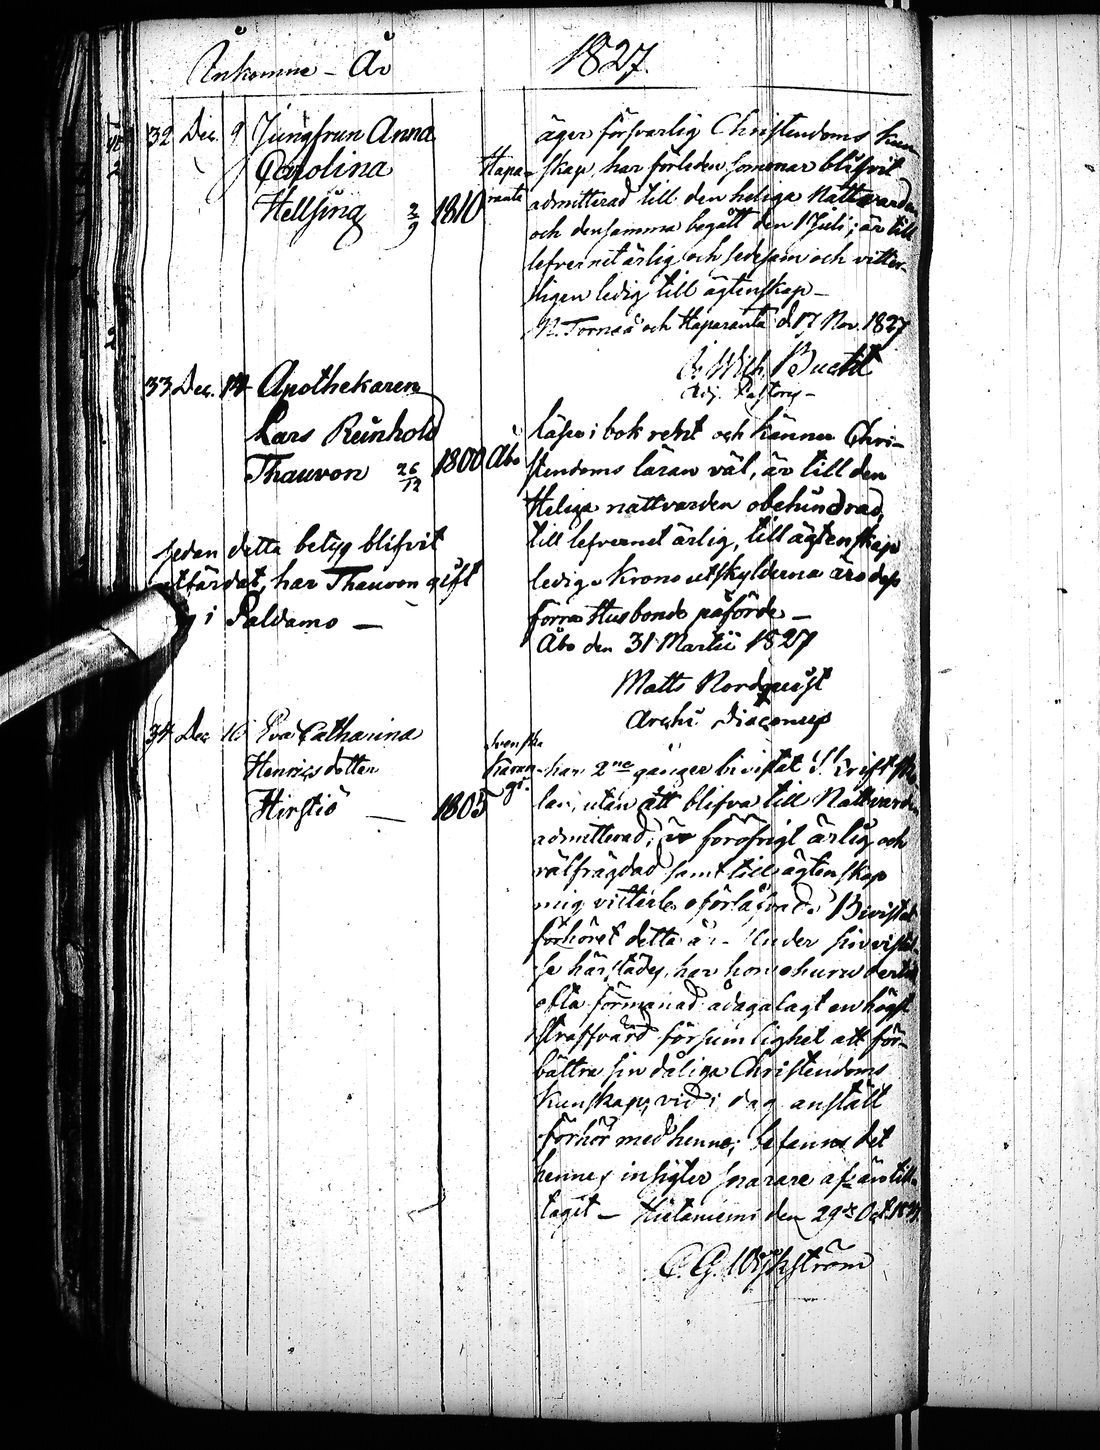 Inkomne – År 1827.
32 Dec. 9 Jungfrun Anna
Carolina
Hellsing 2/9 1810
Hapa-
ranta
äger försvarlig Christendoms kun-
skap, har förleden sommar blifvit
admitterad till den heliga Nattvarden
och densamma begått den 1 Juli; är till
lefvernet ärlig och sedesam och vitter-
ligen ledig till ägtenskap –
N. Torneå och Haparanta d. 17 Nov. 1827
Wilh. Bucht
Adj. Pastoris –
33 Dec. 14 Apothekaren
Lars Reinhold
Thauvon 26/12 1800 Åbo
läser i bok rent och känner Chri-
stendoms läran väl, är till den
Heliga nattvarden obehindrad,
till lefvernet ärlig, till ägtenskap
ledig. Kronoutskylderna äro dess
förra Husbonde påförde –
Åbo den 31 Martii 1827
Matts Nordquist
Archi Diaconus
sedan detta betyg blifvit
utfärdat, har Thauvon gift
i Paldamo –
34 Dec. 16 Eva Catharina
Henrics dotter
Hirstiö – 1805
Svenska
Karun-
gi.
har 2ne gånger bivistat S. Skrift sko-
lan, utan att blifva till Nattvarden
admitterad; är föröfrigt ärlig och
välfrägdad samt till ägtenskap
mig vitterl. oförlåfvad. Bivistat
förhöret detta år – Under sin vistel-
se härstädes, har hon ehuru dertill
ofta förmanad ådagalagt en högst
straffvärd försumlighet att för-
bättra sin dåliga Christendoms
Kunskap; vid i dag anstält
förhör med henne, befanns det
hennes insigter snarare af- än till-
tagit – Hietaniemi den 29de Oct. 1827
C. G. Weckström